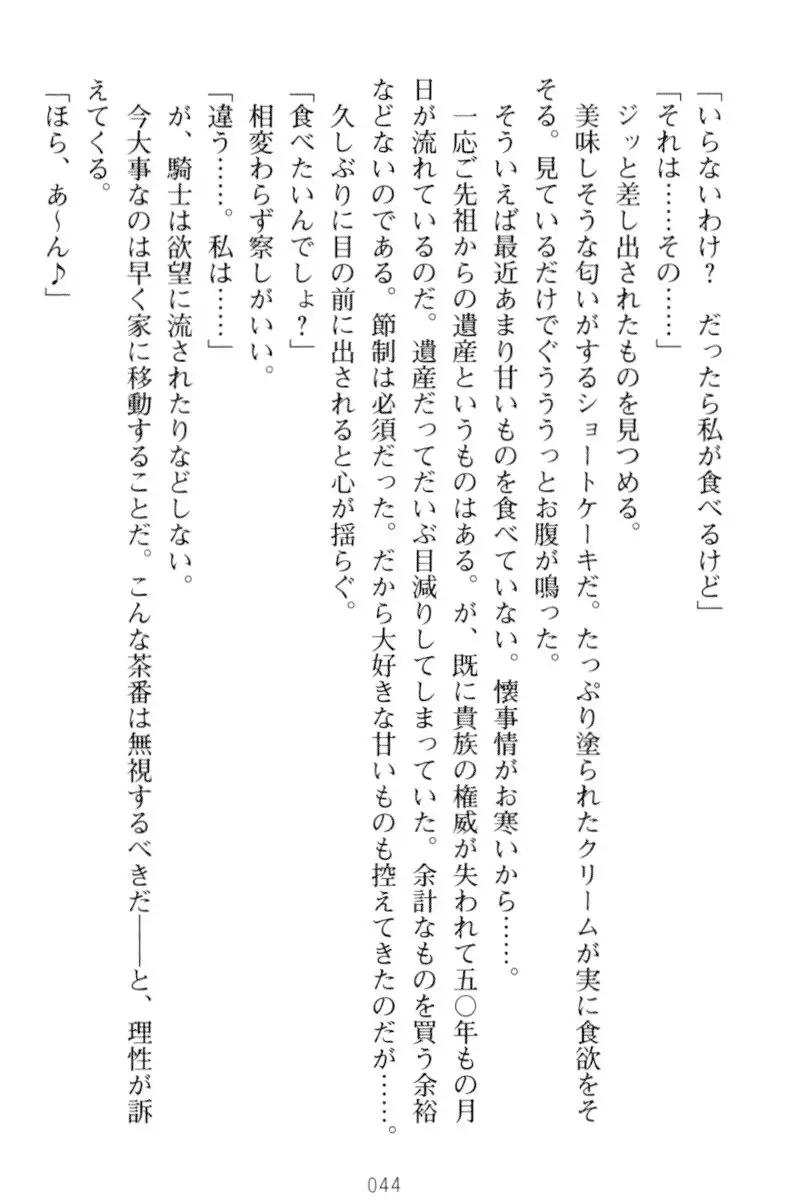 「いらないわけ？　だったら私が食べるけど」
「それは……その……」
　ジッと差し出されたものを見つめる。
　美味しそうな匂いがするショートケーキだ。たっぷり塗られたクリームが実に食欲をそ
そる。見ているだけでぐうううっとお腹が鳴った。
　そういえば最近あまり甘いものを食べていない。懐事情がお寒いから……。
　一応ご先祖からの遺産というものはある。が、既に貴族の権威が失われて五〇年もの月
日が流れているのだ。遺産だってだいぶ目減りしてしまっていた。余計なものを買う余裕
などないのである。節制は必須だった。だから大好きな甘いものも控えてきたのだが……。
　久しぶりに目の前に出されると心が揺らぐ。
「食べたいんでしょ？」
　相変わらず察しがいい。
「違う……。私は……」
　が、騎士は欲望に流されたりなどしない。
　今大事なのは早く家に移動することだ。こんな茶番は無視するべきだ――と、理性が訴
えてくる。
「ほら、あ～ん♪」
044